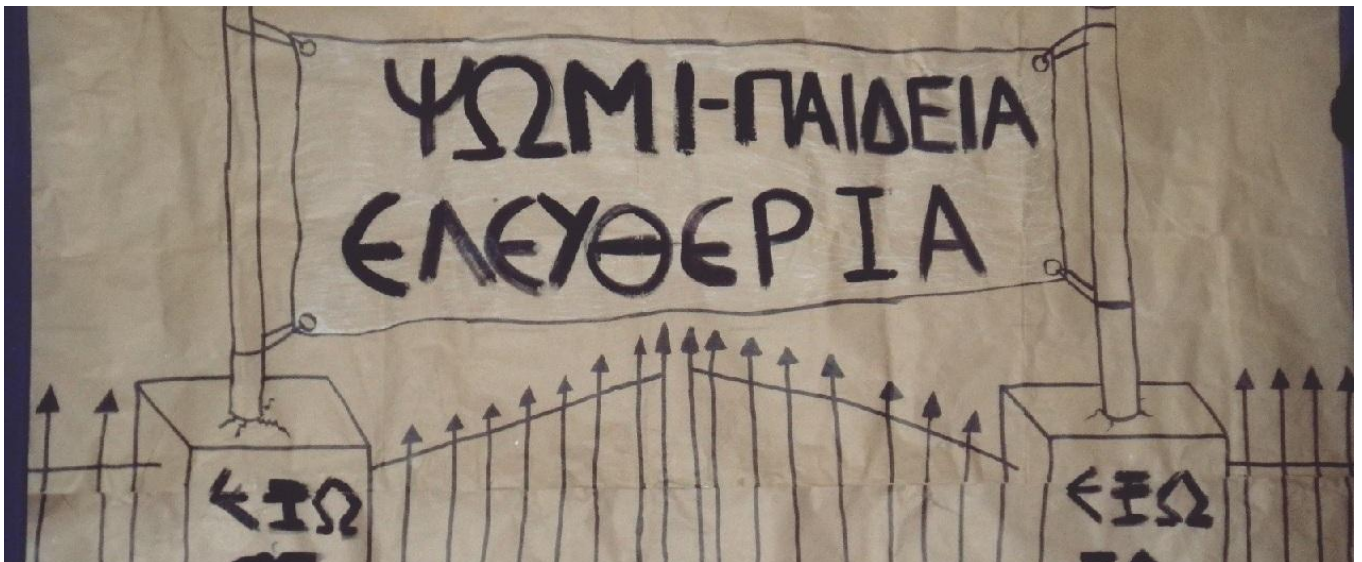 ΨΩΜΙ-ΠΑΙΔΕΙΑ
ΕΛΕΥΘΕΡΙΑ
ΕΞΩ
ΕΞΩ